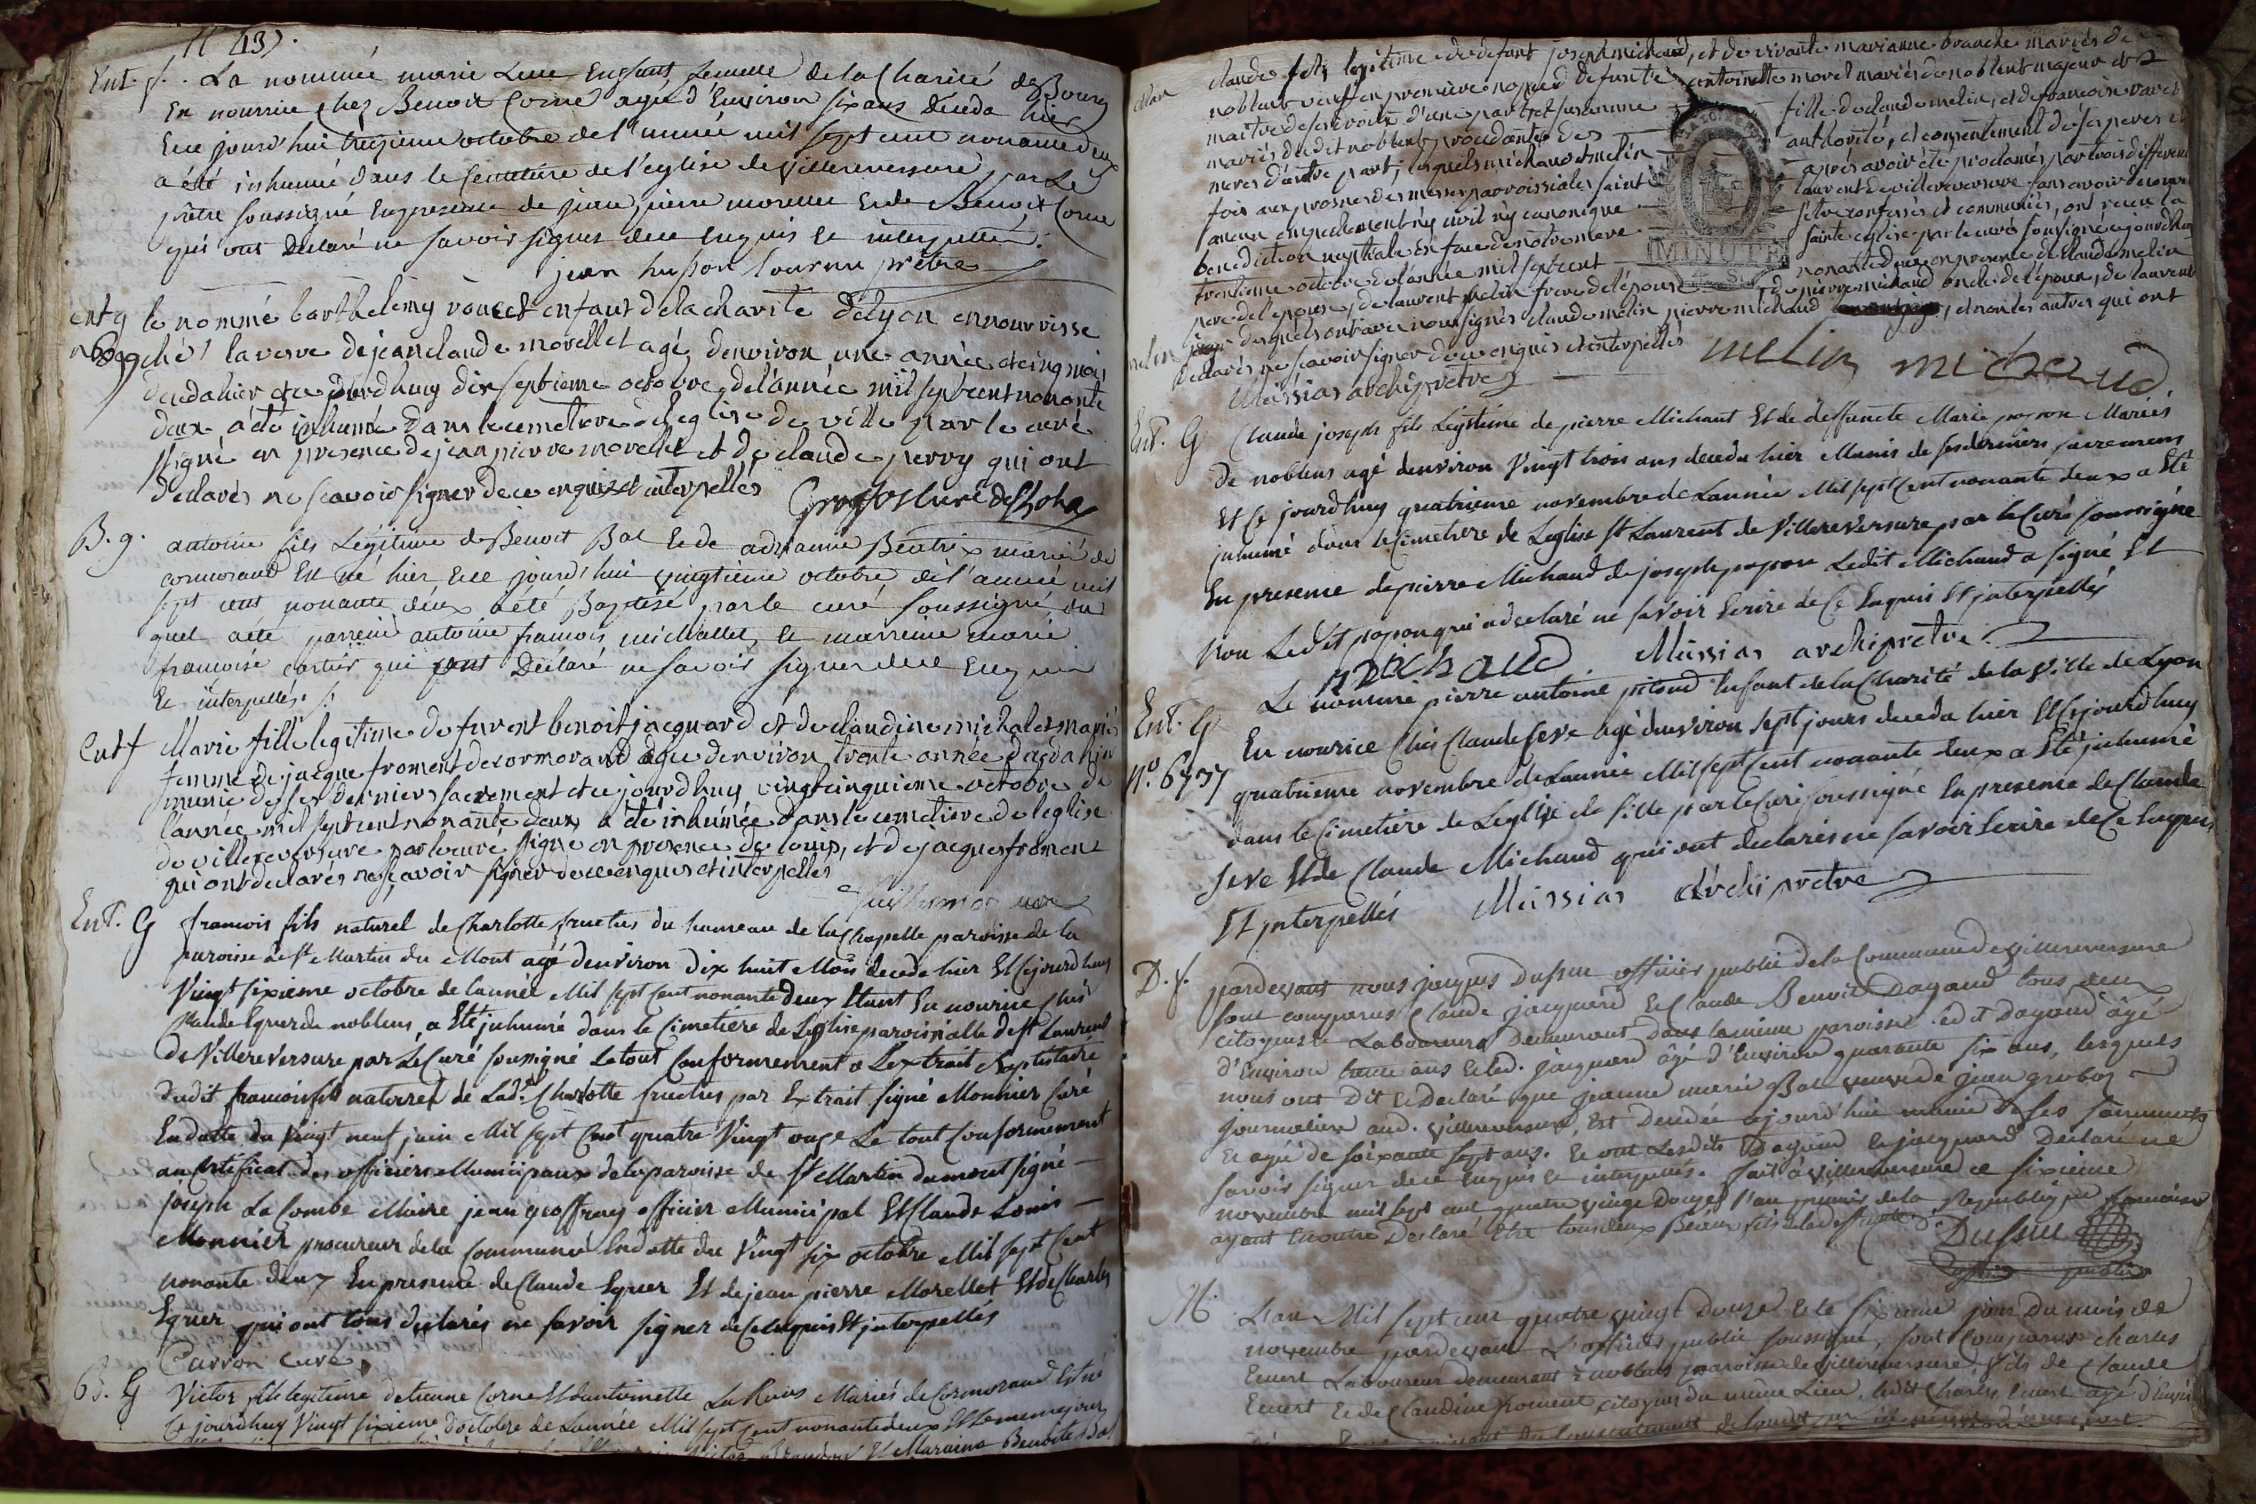 43).
Ent. f. La nommée marie Luce Enfant femelle de la Charité de Bourg
En nourrice chez Benoit Corne agée d'Environ six ans déceda hier
Et ce jourd'hui treizieme octobre de l'année mil sept cent nonante deux
a été inhumée dans le cemetiere de l'église de villereversure par Le
prêtre soussigné En presence de jean pierre morellet Et de Benoit Corne
qui ont Déclaré ne savoir signer de ce Enquis et interpellés.
jean prêtre
ent g le nommé barthelemy enfant de la charite de lyon en nourrisse
ché la veuve de jean claude morellet agé denviron une année et cinq mois
deceda hier et ce jourdhuy dix septieme octobre de l'année mil sept cent nonante
deux a été inhumé dans le cemetiere de leglise de ville par le curé
signé en presence de jean pierre morellet et de claude perroy qui ont
declarés ne scavoir signer de ce enquis et interpellés curé
B. g. antoine fils Légitime de Benoit Bal Et de adrianne Béatrix mariés de
cormorand Est né hier Et ce jourd'hui vingtieme octobre de l'année mil
sept cent nonante deux a été Baptisé par le curé soussigné du
quel a été parrein antoine francois michallet et marreine marie
françoise cartier qui ont Déclaré ne savoir signer de ce Enquis
Et interpellés.
Ent f Marie fille legitime de furent benoit jacquard et de claudine michalet mariés
femme de jacque froment de cormorand agée denviron trente année deceda hier
munie de ses derniers sacrement et ce jourdhuy vingt cinquieme octobre de
l'année mil sept cent nonante deux a été inhumée dans le cemetiere de leglise
de villereversure par le curé signé en presence de louis, et de jacques froment
qui ont declarés ne scavoir signer de ce enquis et interpellés
Ent. G francois fils naturel de Charlotte fructus du hameau de la Chapelle paroisse de la
paroisse de St Martin du Mont agé d'environ dix huit Mois decede hier Et ce jourdhuy
Vingt sixieme octobre de lannée Mil sept Cent nonante deux Etant En nourice Chés
Claude Eguer du noblens, a Eté inhumé dans le Cimetiere de Leglise paroissialle de St Laurent
de Villereversure par Le Curé soussigné Le tout Conformement a L'extrait Baptistaire
dudit francois fils naturel de Lad. Charlotte fructus par Extrait signé Monnier Curé
En datte du vingt neuf juin Mil sept Cent quatre Vingt onze Le tout Conformement
au Certificat des officiers Municipaux de la paroisse de St Martin du mont signé
joseph La Combe Maire jean geoffray officier Municipal Et Claude Louis
Monnier procureur de la Commune En datte du Vingt six octobre Mil sept Cent
nonante deux En presence de Claude Eguer Et de jean pierre Morellet Et de Charles
Eguer qui ont tous declarés ne savoir signer de Ce Enquis Et interpellés
Carron curé
B. G Victor fils legitime detienne Corne Et dantoinette La Rous Mariés de Cormorand Est né
Ce jourdhuy Vingt sixieme doctobre de Lannée Mil sept Cent nonante deux Et Le meme jour
Et Maraine Benoite Bal
claude fils legitime de defunt joseph michaud, et de vivante marianne branche mariés de
noblens veuf en premiere noces de defunte antoinette morel mariés de noblens majeur et
maitre de ses droits d'une part et susanne fille de claude melin, et de francoise
mariés dudit noblens procedante des authorité, et consentement de ses peres et
meres d'autre part; lesquels michaud et melin après avoir été proclamés par trois differentes
fois aux prosnes des messes parroissiales saint laurent de villereversure sans avoir decouvert
aucun empechement ny civil ny canonique s'etre confessés et communiés, ont recu la
benediction nuptiale en face de notre mere sainte eglise par le curé soussigné ce jourdhuy
trentieme octobre de l'année mil sept cent nonante deux en presence de claude melin
pere de l'epouse, de laurent melin frere de l'epouse de pierre michaud oncle de l'epoux, de laurent
desquels ont avec nous signés claude melin pierre michaud, et non les autres qui ont
declarés ne scavoir signer de ce enquis et interpellés melin michaud
Missias archiprêtre
MINUTE
4 S.
Ent. G Claude joseph fils Legitime de pierre Michaut Et de deffuncte Marie popon Mariés
de noblens agé denviron Vingt trois ans decedu hier Munis de ses derniers sacremens
Et Ce jourdhuy quatrieme novembre de Lannée Mil sept Cent nonante deux a Eté
inhumé dans le Cimetiere de Leglise St Laurent de Villereversure par le Curé soussigné
En presence de pierre Michaud de joseph popon Ledit Michaud a signé Et
non Ledit popon qui a declaré ne savoir Ecrire de Ce Enquis Et interpellés
michaud Missias archiprêtre
Ent. G Le nommé pierre antoine pitoud Enfant de la Charité de la Ville de Lyon
N° 6737 En nourice Chés Claude seve agé denviron sept jours deceda hier Et Ce jourdhuy
quatrieme novembre de Lannée Mil sept Cent nonante deux a Eté inhumé
dans le Cimetiere de Leglise de Ville par le Curé soussigné En presence de Claude
seve Et de Claude Michaud qui ont declarés ne savoir Ecrire de Ce Enquis
Et interpellés Missias Archiprêtre
D. f. pardevant nous jacques Dufour officier public de la Commune de villereversure
sont comparus Claude jacquard Et Claude Benoit Dagaud tous deux
citoyens Et Laboureurs Demeurant dans la même paroisse. ledit Dagaud âgé
d'Environ trente ans Et led. jacquard âgé d'Environ quarante six ans, lesquels
nous ont Dit Et Declaré que jeanne marie Bal veuve de jean groboz
journaliere aud. villereversure, Est Decedée cejourd'hui munie de ses sacrements
Et agée de soixante sept ans. Et ont Lesdits Dagaud Et jacquard Declaré ne
savoir signer de ce Enquis Et interpellés. fait à villereversure ce sixieme
novembre mil sept cent quatre vingt Douze l'an premier de la République françoise
ayant En outre Declaré Etre tous deux Beaux fils de la deffuncte.
officier public
M. L'an Mil sept cent quatre vingt Douze Et le sixieme jour Du mois de
novembre pardevant L'officier public soussigné, sont Comparus charles
Ecuert Laboureur demeurant à noblens paroisse de villereversure fils de Claude
Ecuert Et de Claudine froment, citoyens du même Lieu, ledit Charles Ecuert agé d'Environ